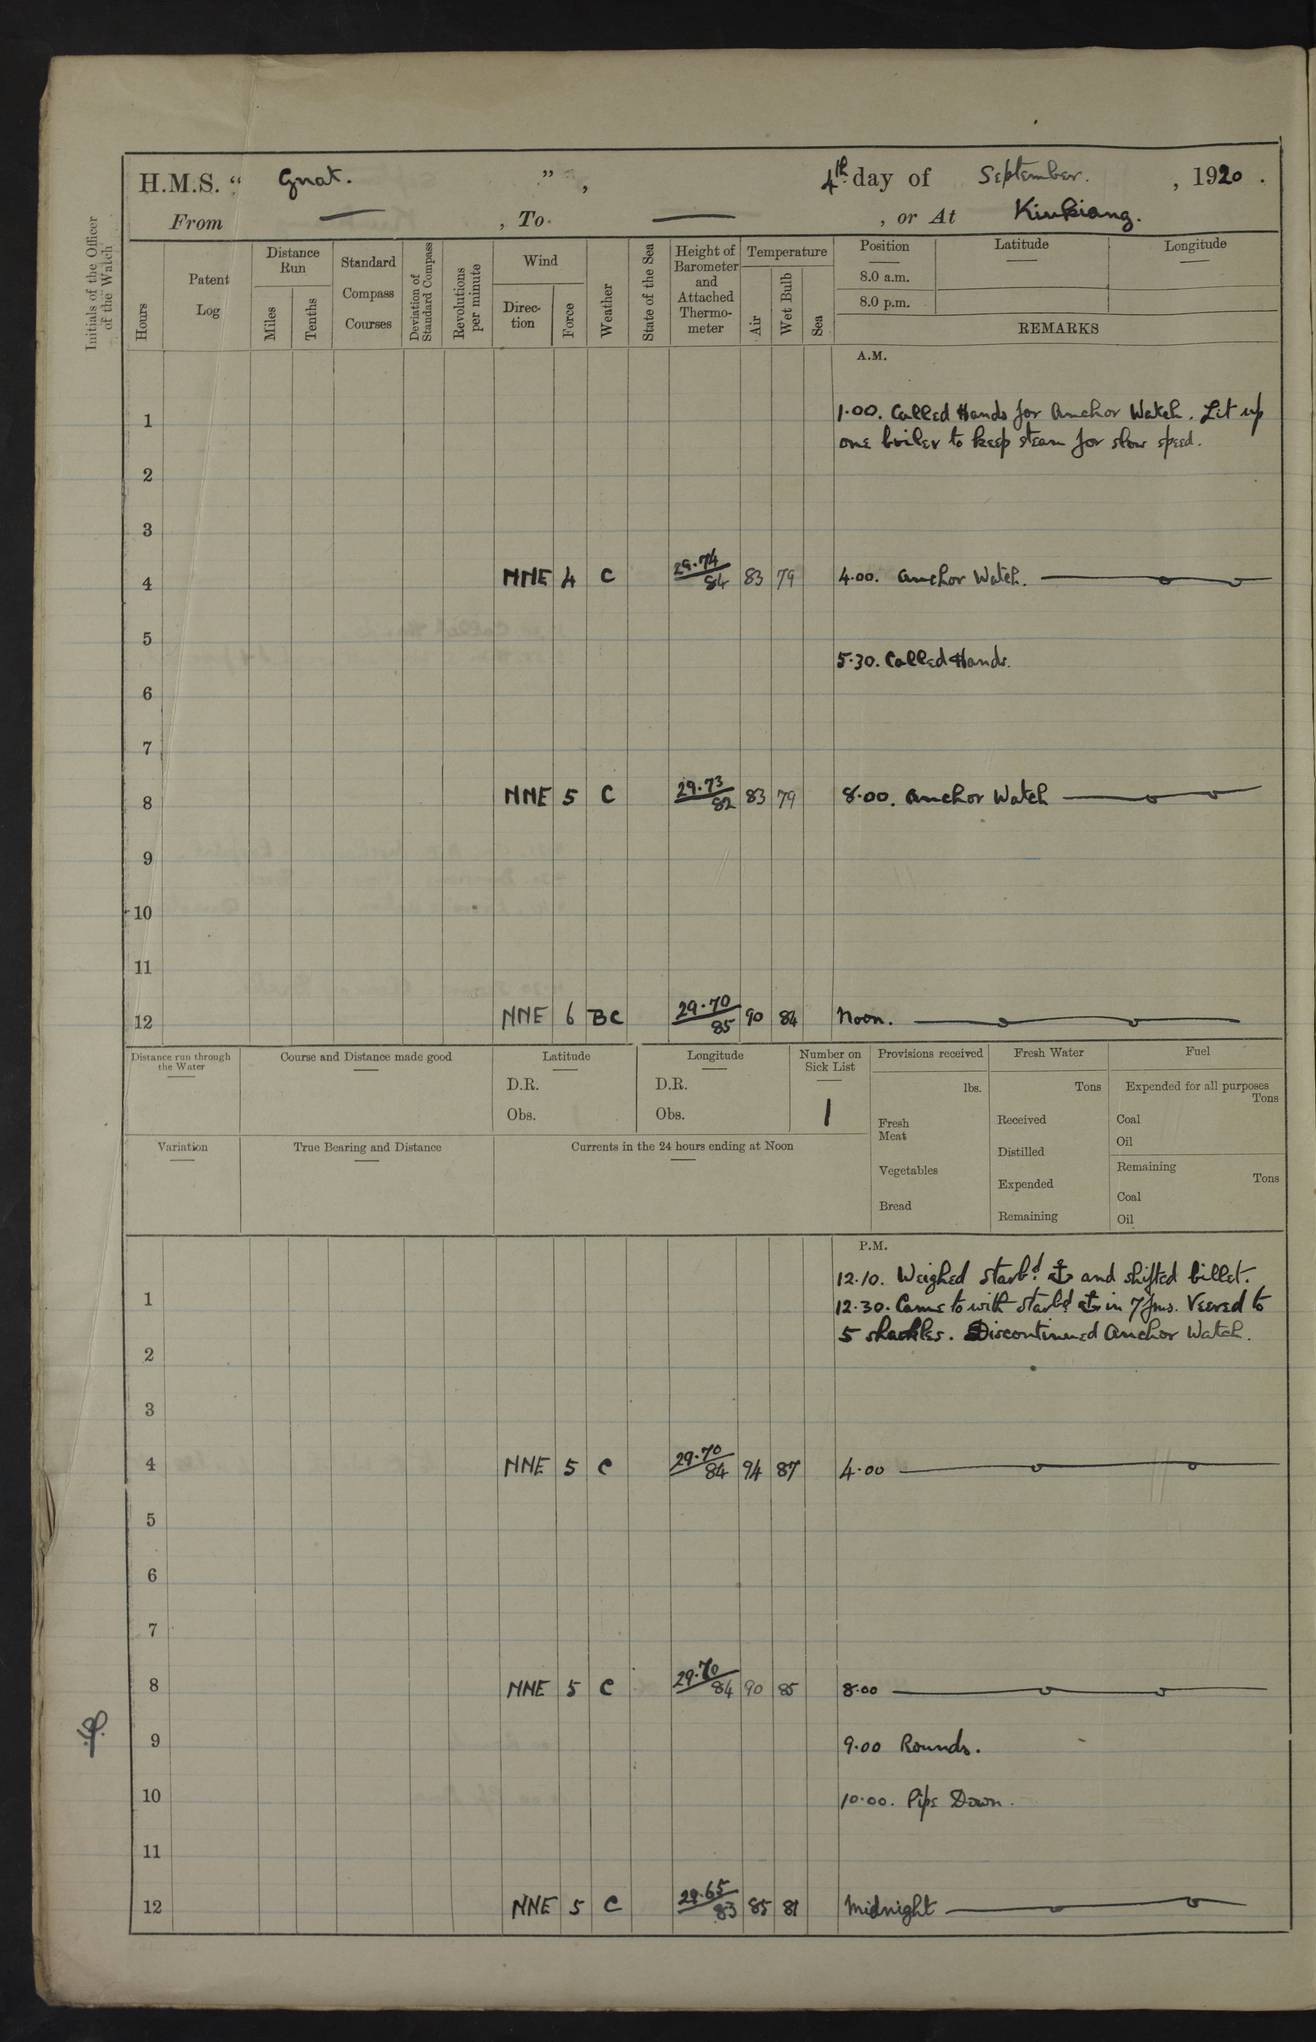 H.M.S. “ Gnat. ” , 4th day of September. , 1920 .
From — , To — , or At Kiukiang.
Initials of the Officer of the Watch
Hours
Patent Log
Distance Run
Miles
Tenths
Standard Compass Courses
Deviation of Standard Compass
Revolutions per minute
Wind
Direc- tion
Force
Weather
State of the Sea
Height of Barometer and Attached Thermo- meter
Temperature
Air
Wet Bulb
Sea
Position
Latitude
Longitude
8.0 a.m.
8.0 p.m.
REMARKS
A.M.
1 1.00. Called Hands for Anchor Watch. Lit up
one boiler to keep steam for slow speed.
2
3
4 NNE 4 C 29.74/84 83 79 4.00. Anchor Watch.
5
5.30. Called Hands.
6
7
8 NNE 5 C 29.73/82 83 79 8.00. Anchor Watch
9
10
11
12 NNE 6 BC 29.70/85 90 84 Noon.
Distance run through the Water
Course and Distance made good
Latitude
D.R.
Obs.
Longitude
D.R.
Obs.
Number on Sick List
1
Provisions received
lbs.
Fresh Meat
Vegetables
Bread
Fresh Water
Tons
Received
Distilled
Expended
Remaining
Fuel
Expended for all purposes
Tons
Coal
Oil
Remaining
Tons
Coal
Oil
Variation
True Bearing and Distance
Currents in the 24 hours ending at Noon
P.M.
12.10. Weighed starbd ⚓ and shifted billet.
1 12.30. Came to with starbd ⚓ in 7 fms. Veered to
5 shackles. Discontinued Anchor Watch.
2
3
4 NNE 5 C 29.70/84 94 87 4.00
5
6
7
8 NNE 5 C 29.70/84 90 85 8.00
9 9.00 Rounds.
10 10.00. Pipe Down.
11
12 NNE 5 C 29.65/83 85 81 Midnight